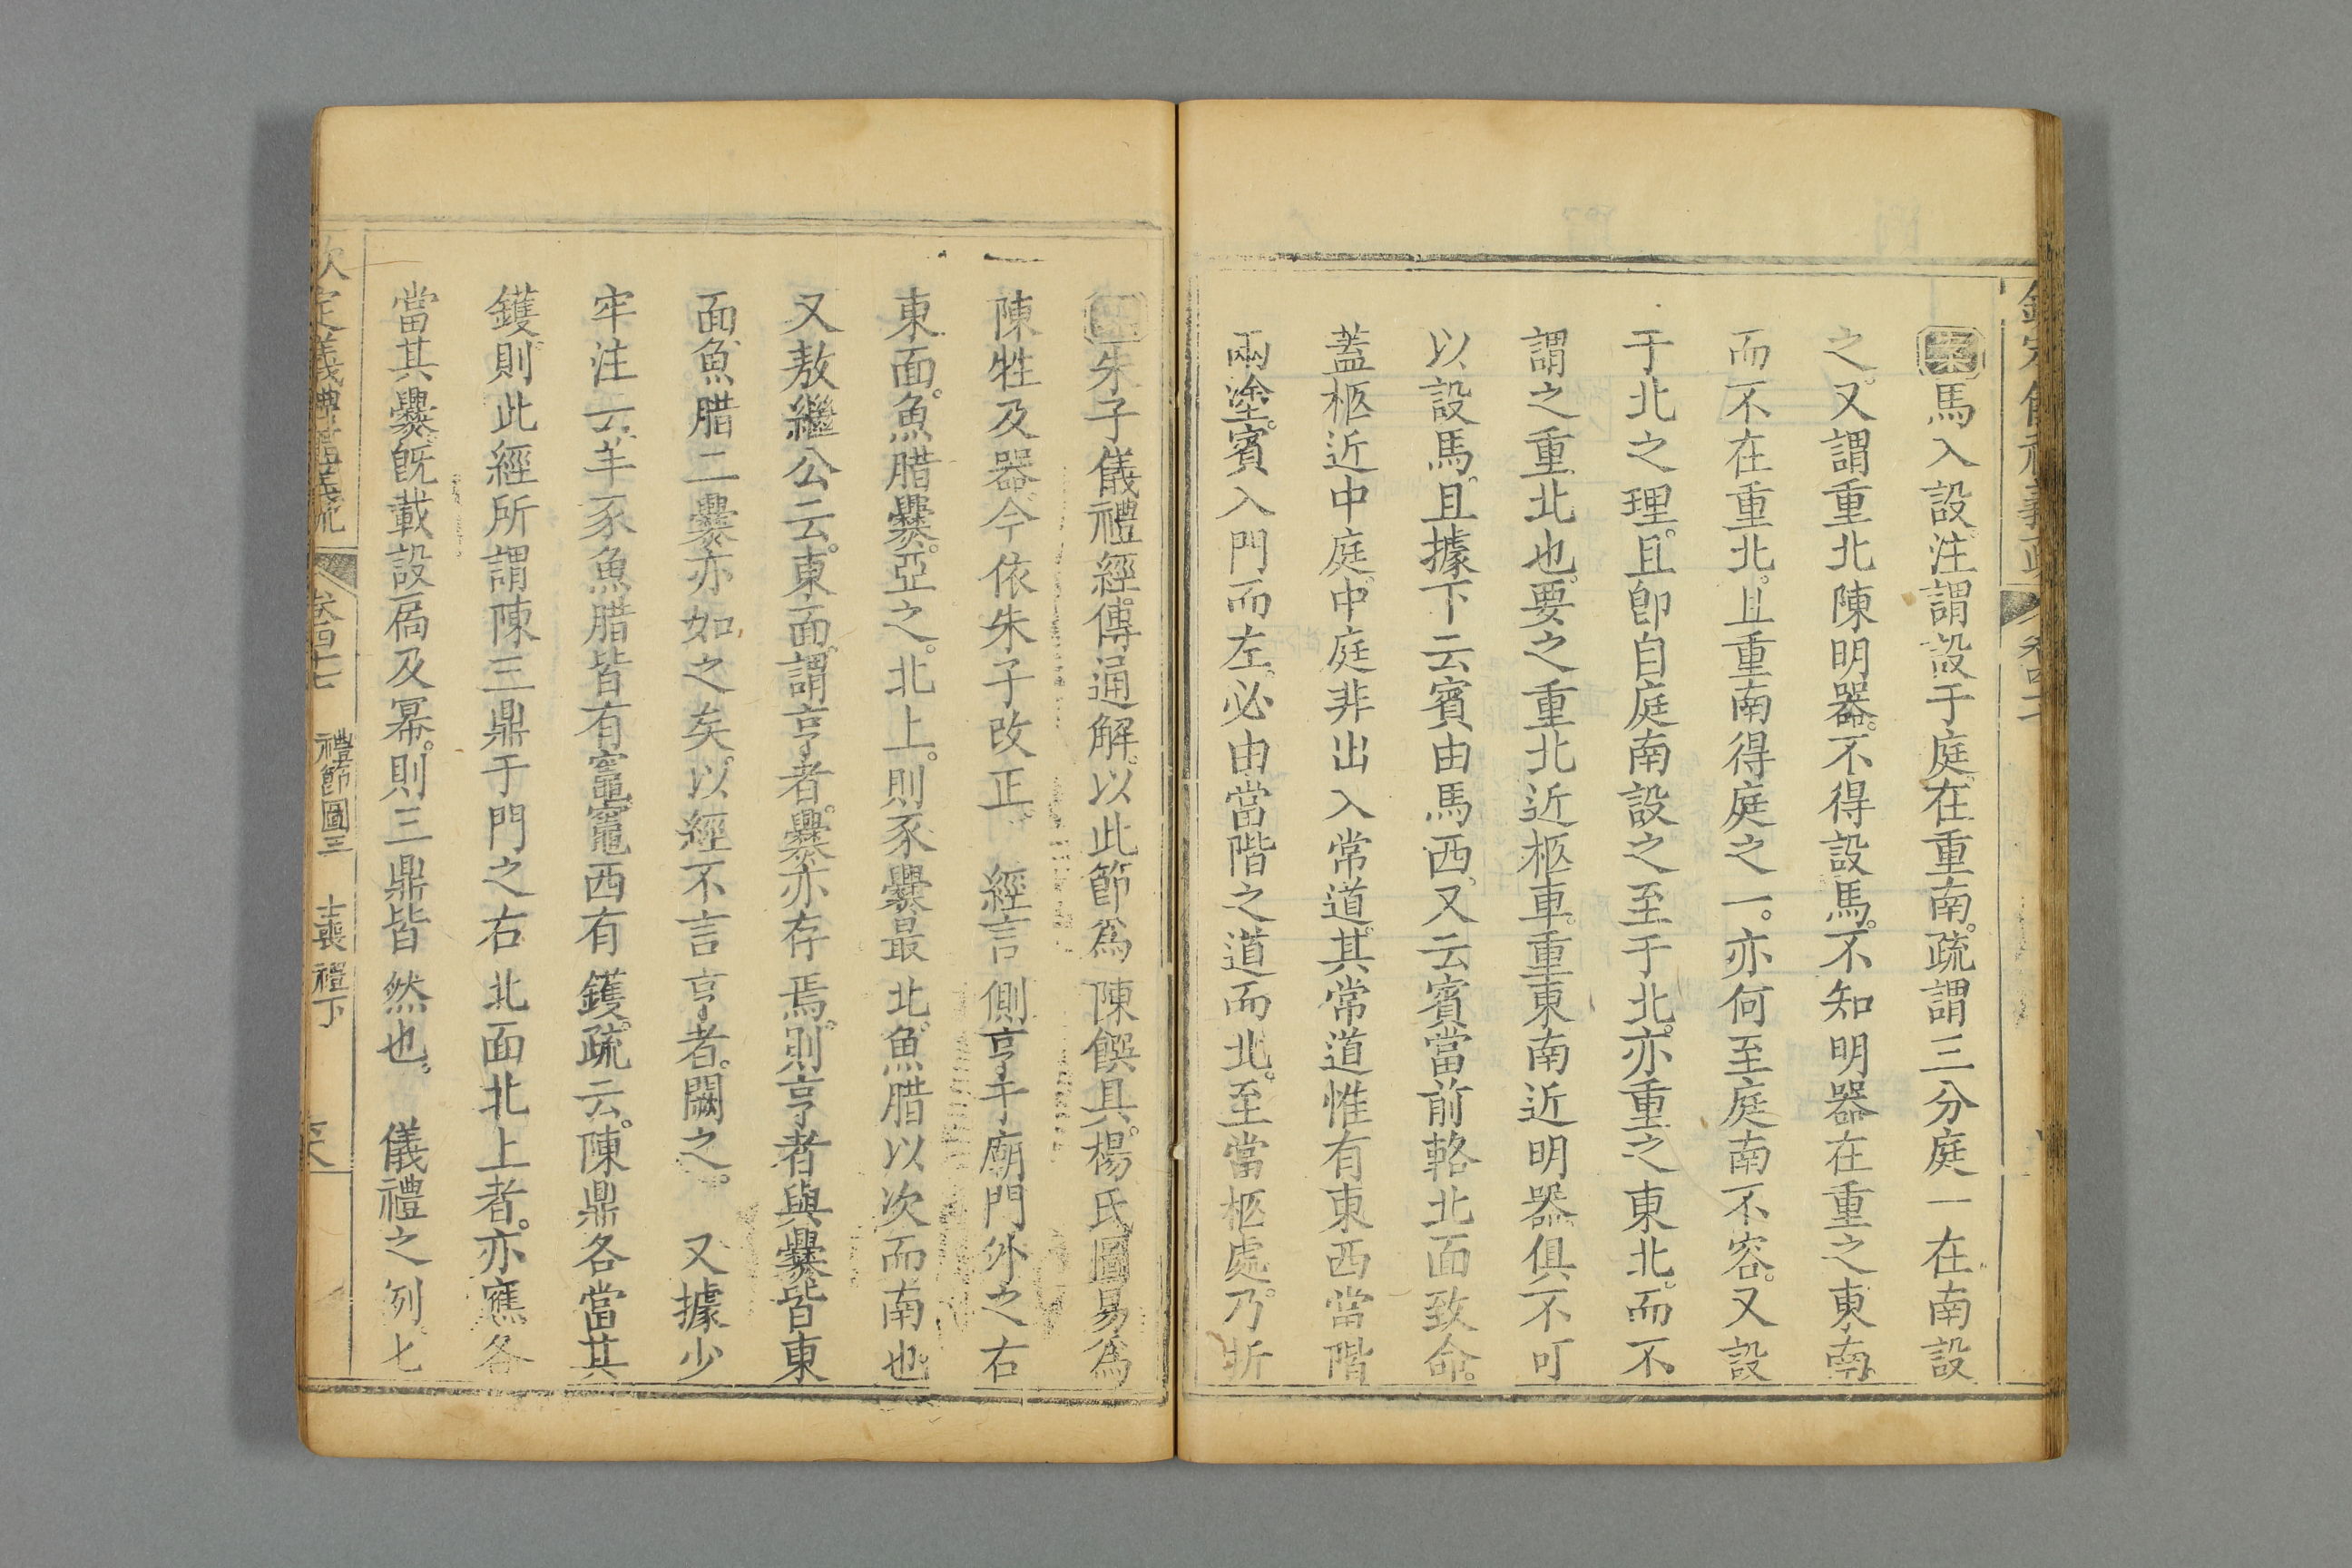 案馬入設注謂設于庭在重南。疏謂三分庭一在南設
之。又謂重北陳明器。不得設馬。不知明器在重之東南
而不在重北。且重南得庭之一。亦何至庭南不容。又設
于北之理。且卽自庭南設之至于北。亦重之東北。而不
謂之重北也。要之重北近柩車。重東南近明器俱不可
以設馬。且據下云賓由馬西。又云賓當前輅北面致命。
蓋柩近中庭。中庭非出入常道。其常道惟有東西當階
兩塗。賓入門而左。必由當階之道而北。至當柩處。乃折
朱子儀禮經傳通解。以此節爲陳饌具。楊氏圖易爲
陳牲及器。今依朱子改正。 經言側亨于廟門外之右
東面。魚腊爨。亞之。北上。則豕爨最北。魚腊以次而南也。
又敖繼公云。東面。謂亨者。爨亦存焉。則亨者與爨皆東
面。魚腊二爨亦如之矣。以經不言亨者。闕之。 又據少
牢注云。羊豕魚腊皆有竈。竈西有鑊。疏云。陳鼎各當其
鑊。則此經所謂陳三鼎于門之右北面北上者。亦應各
當其爨。旣載設扃及冪。則三鼎皆然也。 儀禮之例七
欽定儀禮義疏 卷四十七 禮節圖三 士喪禮下